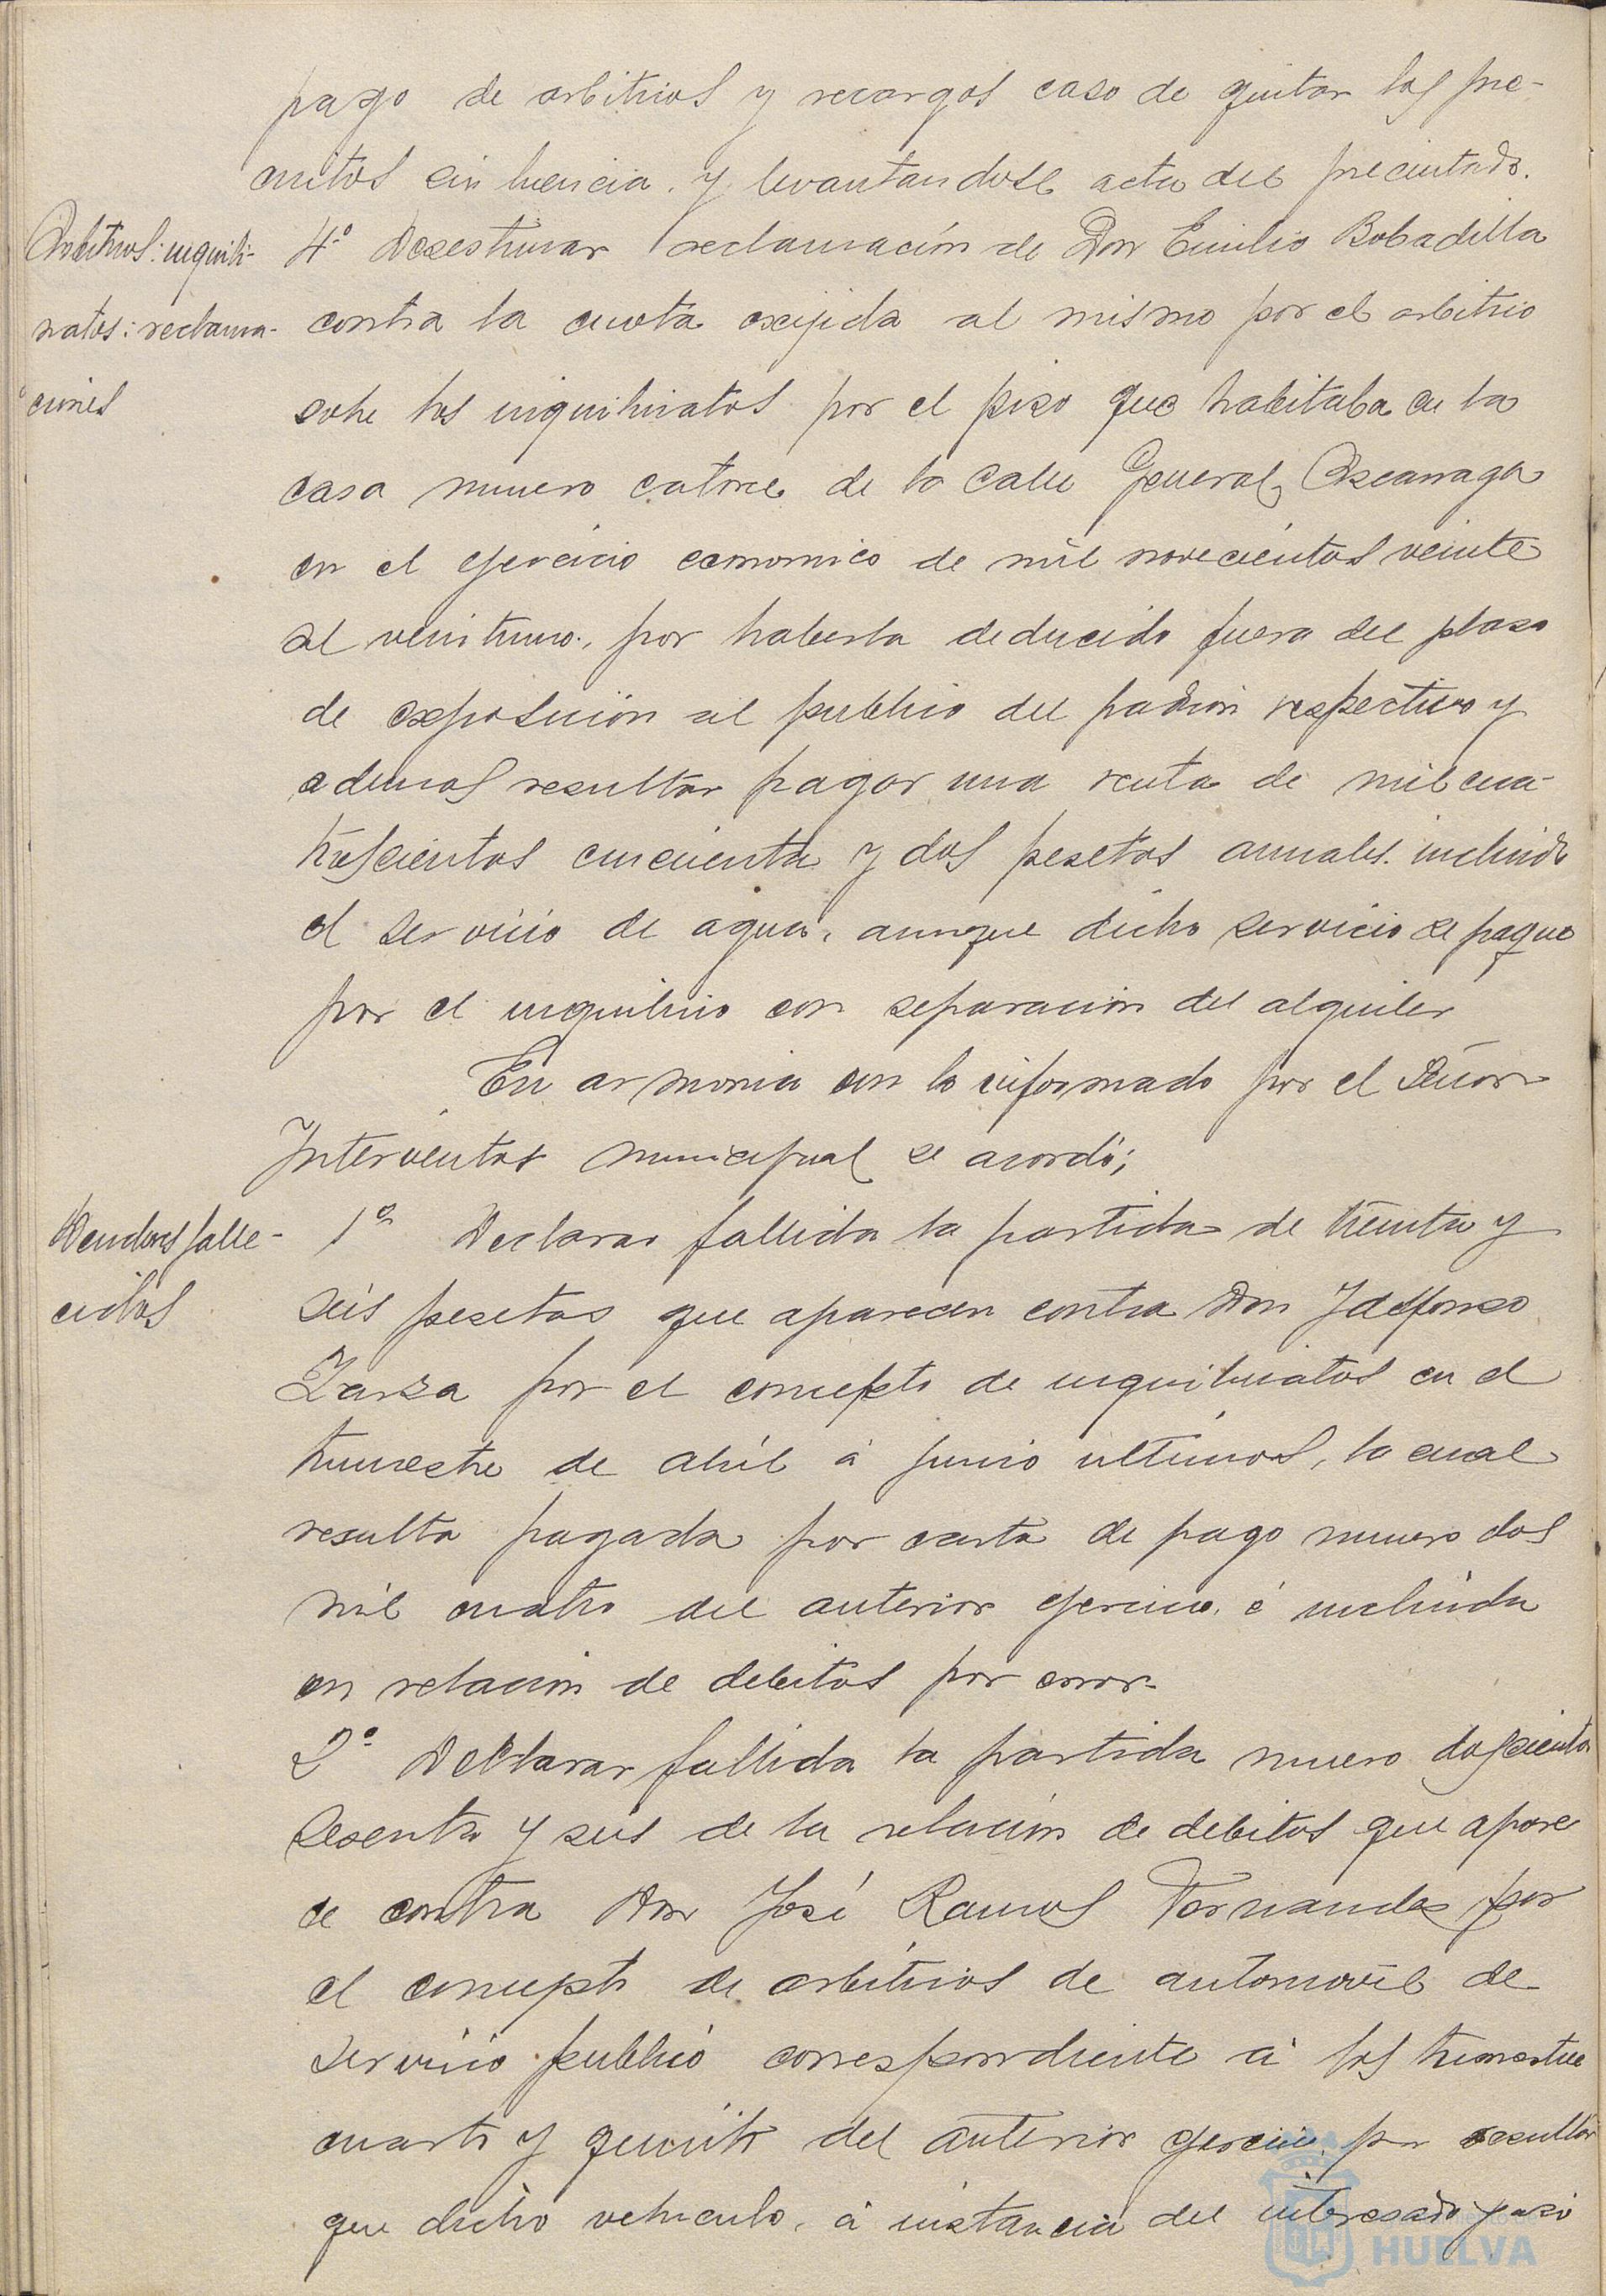 pago de arbitrios y recargos caso de quitar los pre-
cintos sin licencia. y levantandose acta del precintado.
Arbitrios: inquili-
natos: reclama-
ciones
4º Desestimar reclamación de Don Emilio Bobadilla
contra la cuota exijida al mismo por el arbitrio
sobre los inquilinatos por el piso que habitaba en la
casa numero catorce de la Calle General Azcarraga
en el ejercicio economico de mil novecientos veinte
al veintiuno, por haberla deducido fuera del plazo
de exposición al publico del padrón respectivo y
ademas resultar pagar una renta de mil cua-
trescientos cincuenta y dos pesetas anuales incluido
el servicio de agua, aunque dicho servicio se pague
por el inquilino con separacion del alquiler
En armonia con lo informado por el Señor
Interventor municipal se acordó;
Deudores falle-
cidos
1º Declarar fallida la partida de treinta y
seis pesetas que aparecen contra Don Ildelfonso
Zarza por el concepto de inquilinatos en el
trimestre de abril á junio ultimos, la cual
resulta pagada por carta de pago numero dos
mil cuatro del anterior ejercicio. é incluida
en relacion de debitos por error
2º Declarar fallida la partida numero doscientos
sesenta y seis de la relación de debitos que apare
ce contra Don José Ramos Fernandez por
el concepto de arbitrios de automovil de
servicio publicó correspondiente á los trimestres
cuarto y quinto del anterior ejercicio por resultar
que dicho vehiculo, á instancia del interesado pasó
HUELVA